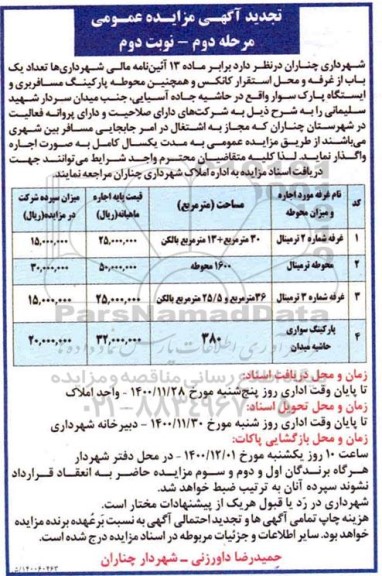 تجدید آگهی مزایده عمومی
مرحله دوم - نوبت دوم
شهرداری چناران درنظر دارد برابر ماده ۱۳ آئین‌نامه مالی شهرداری‌ها تعداد یک
باب از غرفه و محل استقرار کانکس و همچنین محوطه پارکینگ مسافربری و
ایستگاه پارک سوار واقع در حاشیه جاده آسیایی، جنب میدان سردار شهید
سلیمانی را به شرح ذیل به شرکت‌های دارای صلاحیت و دارای پروانه فعالیت
در شهرستان چناران که مجاز به اشتغال در امر جابجایی مسافر بین شهری
می‌باشند از طریق مزایده عمومی به مدت یکسال کامل به صورت اجاره
واگذار نماید. لذا کلیه متقاضیان محترم واجد شرایط می‌توانند جهت
دریافت اسناد مزایده به اداره املاک شهرداری چناران مراجعه نمایند.
کد | نام غرفه مورد اجاره و میزان محوطه | مساحت (مترمربع) | قیمت پایه اجاره ماهیانه(ریال) | میزان سپرده شرکت در مزایده(ریال)
۱ | غرفه شماره ۲ ترمینال | ۳۰ مترمربع+۱۳ مترمربع بالکن | ۲۵,۰۰۰,۰۰۰ | ۱۵,۰۰۰,۰۰۰
۲ | محوطه ترمینال | ۱۶۰۰ محوطه | ۵۰,۰۰۰,۰۰۰ | ۳۰,۰۰۰,۰۰۰
۳ | غرفه شماره ۳ ترمینال | ۳۶مترمربع و ۲۵/۵ مترمربع بالکن | ۲۵,۰۰۰,۰۰۰ | ۱۵,۰۰۰,۰۰۰
۴ | پارکینگ سواری حاشیه میدان | ۳۸۰ | ۳۲,۰۰۰,۰۰۰ | ۲۰,۰۰۰,۰۰۰
ParsNamadData
زمان و محل دریافت اسناد:
تا پایان وقت اداری روز پنج‌شنبه مورخ ۱۴۰۰/۱۱/۲۸ - واحد املاک
زمان و محل تحویل اسناد:
تا پایان وقت اداری روز شنبه مورخ ۱۴۰۰/۱۱/۳۰ - دبیرخانه شهرداری
زمان و محل بازگشایی پاکات:
ساعت ۱۰ روز یکشنبه مورخ ۱۴۰۰/۱۲/۰۱ - در محل دفتر شهردار
هرگاه برندگان اول و دوم و سوم مزایده حاضر به انعقاد قرارداد
نشوند سپرده آنان به ترتیب ضبط خواهد شد.
شهرداری در رَد یا قبول هریک از پیشنهادات مختار است.
هزینه چاپ تمامی آگهی ها و تجدید احتمالی آگهی به نسبت بَرعُهده برنده مزایده
خواهد بود. سایر اطلاعات و جزئیات مربوطه در اسناد مزایده درج شده است.
حمیدرضا داورزنی - شهردار چناران